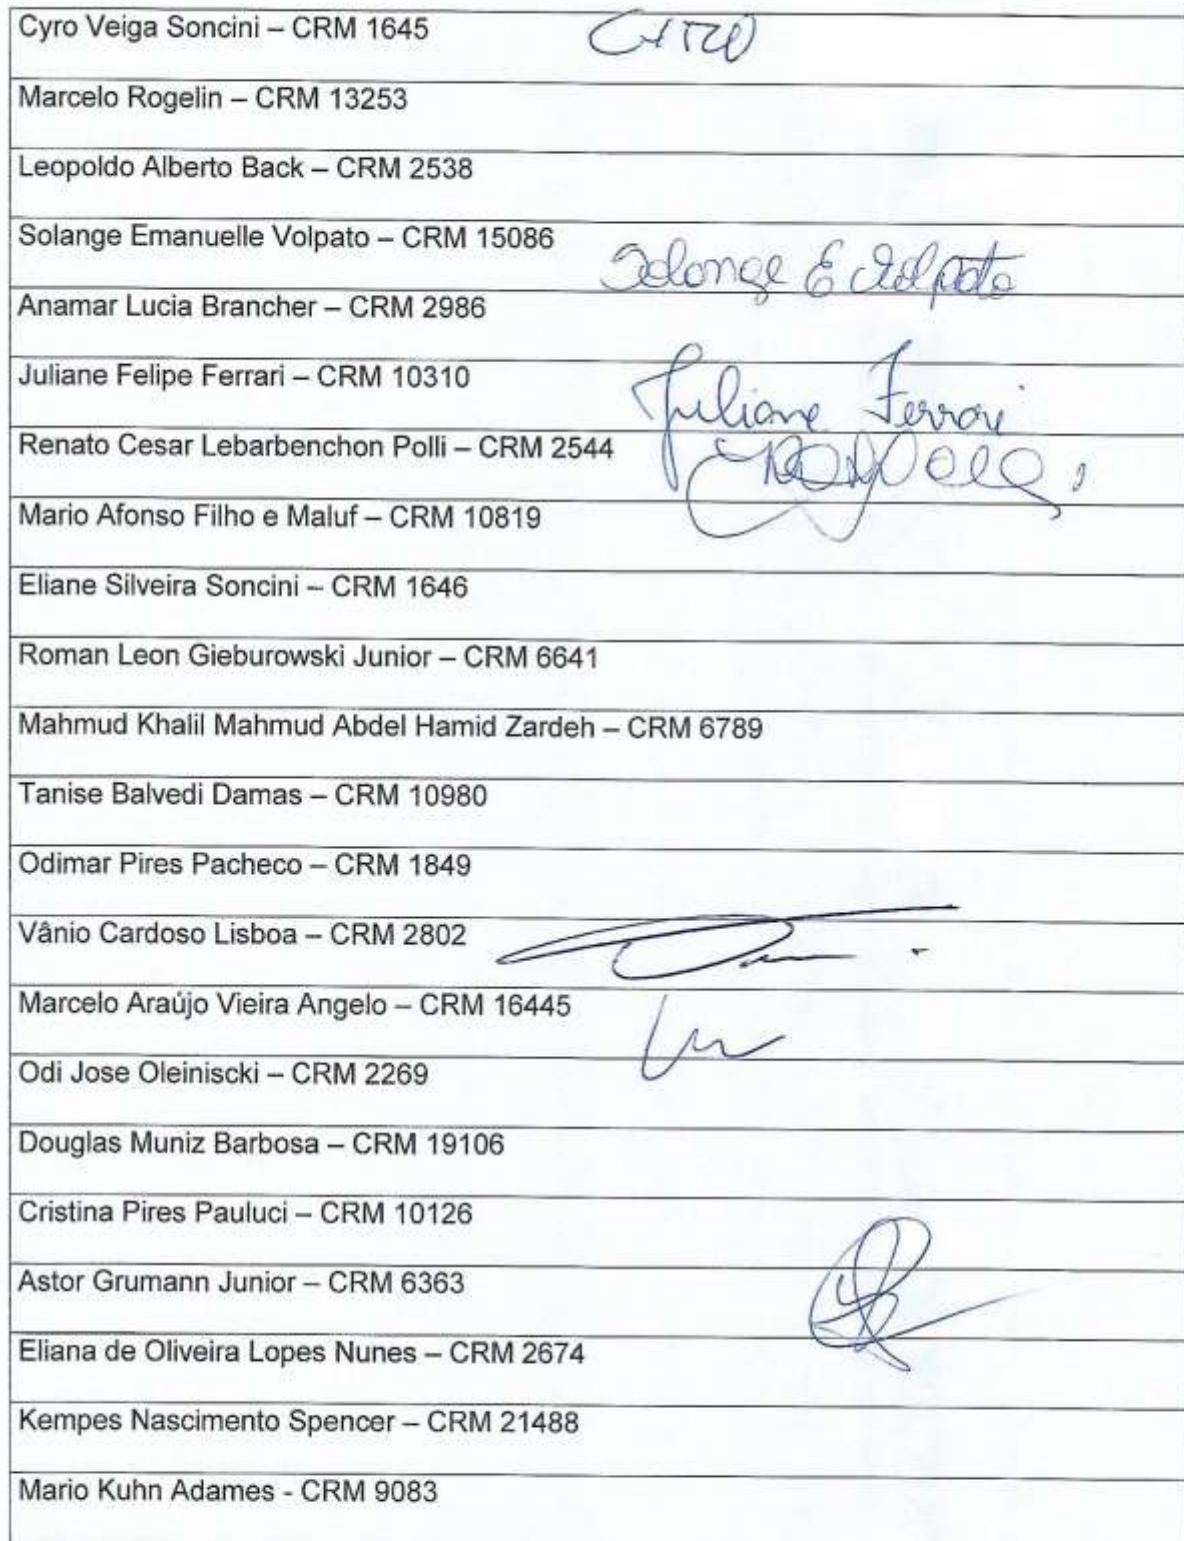 Cyro Veiga Soncini – CRM 1645 Cyro
Marcelo Rogelin – CRM 13253
Leopoldo Alberto Back – CRM 2538
Solange Emanuelle Volpato – CRM 15086 Solange E Volpato
Anamar Lucia Brancher – CRM 2986
Juliane Felipe Ferrari – CRM 10310 Juliane Ferrari
Renato Cesar Lebarbenchon Polli – CRM 2544
Mario Afonso Filho e Maluf – CRM 10819
Eliane Silveira Soncini – CRM 1646
Roman Leon Gieburowski Junior – CRM 6641
Mahmud Khalil Mahmud Abdel Hamid Zardeh – CRM 6789
Tanise Balvedi Damas – CRM 10980
Odimar Pires Pacheco – CRM 1849
Vânio Cardoso Lisboa – CRM 2802
Marcelo Araújo Vieira Angelo – CRM 16445
Odi Jose Oleiniscki – CRM 2269
Douglas Muniz Barbosa – CRM 19106
Cristina Pires Pauluci – CRM 10126
Astor Grumann Junior – CRM 6363
Eliana de Oliveira Lopes Nunes – CRM 2674
Kempes Nascimento Spencer – CRM 21488
Mario Kuhn Adames - CRM 9083